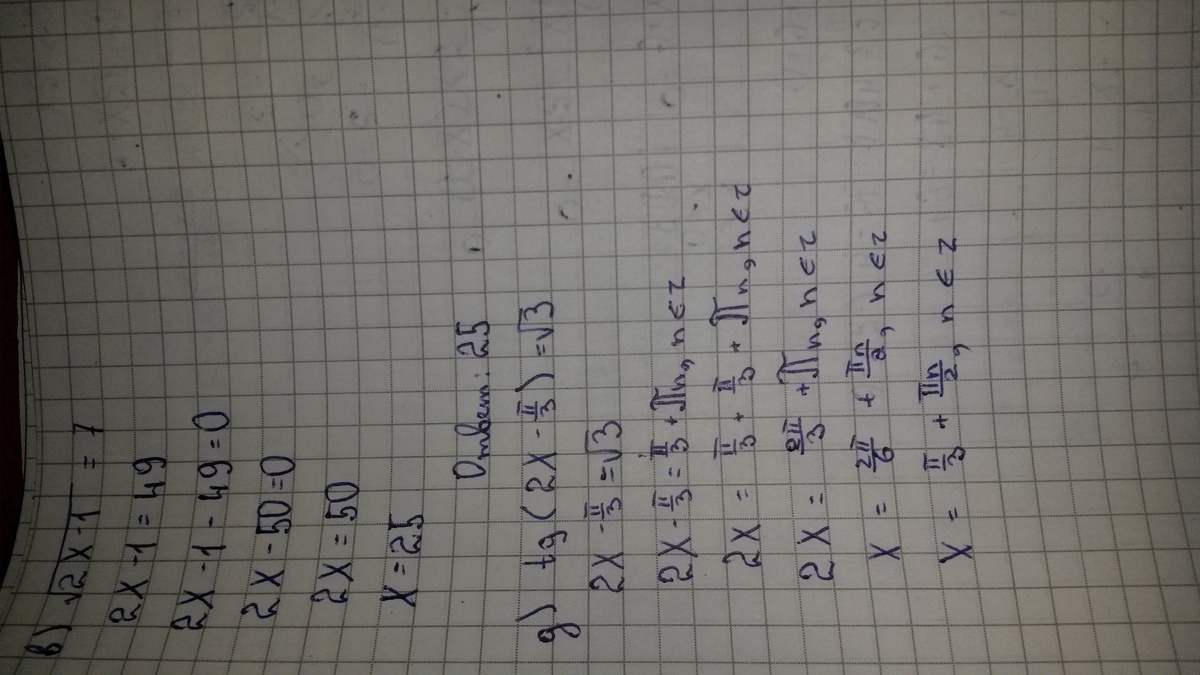 в) √2x-1 = 7
2x-1 = 49
2x-1-49=0
2x-50=0
2x=50
x=25
Ответ: 25
д) tg(2x-π/3)=√3
2x-π/3=√3
2x-π/3=π/3+πn, n∈z
2x = π/3+π/3+πn, n∈z
2x = 2π/3+πn, n∈z
x = 2π/6+πn/2, n∈z
x = π/3+πn/2, n∈z